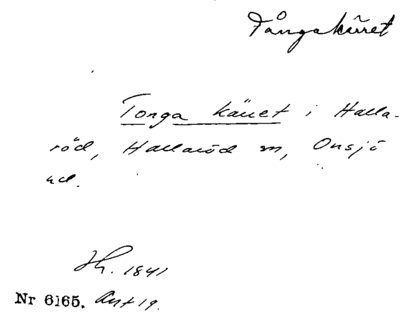 Tångakäret
Tonga käret i Halla-
röd, Hallaröd sn, Onsjö
hd.
Jh. 1841
Nr 6165. Ant 19.